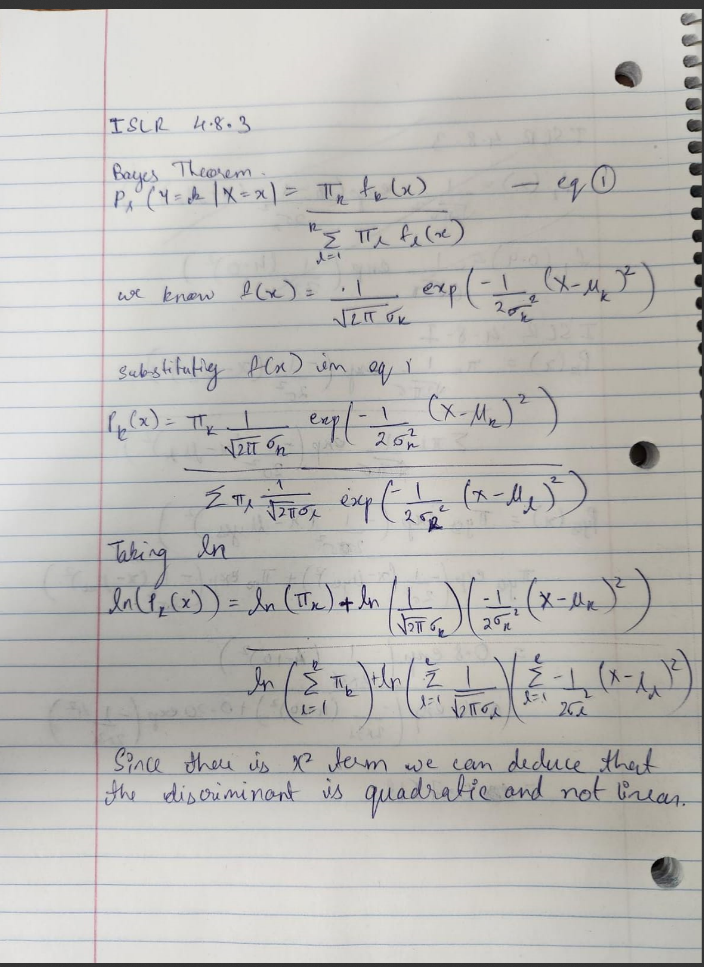 ISLR 4.8.3
Bayes Theorem.
Pr (Y=k | X=x) = π_k f_k(x) / Σ_{l=1}^{k} π_l f_l(x) — eq ①
we know f(x) = 1/(√2π σ_k) exp(-1/(2σ_k²) (x-μ_k)²)
substituting f(x) in eq 1
P_k(x) = π_k 1/(√2π σ_k) exp(-1/(2σ_k²) (x-μ_k)²)
Σ π_l 1/(√2π σ_l) exp(-1/(2σ_k²) (x-μ_l)²)
Taking ln
ln(P_k(x)) = ln(π_k) + ln(1/(√2π σ_k)) (-1/(2σ_k²) (x-μ_k)²)
ln(Σ_{l=1}^{k} π_k) + ln(Σ_{l=1}^{k} 1/(√2π σ_l)) (Σ_{l=1}^{k} -1/(2σ_l²) (x-μ_l)²)
Since there is x² term we can deduce that
the discriminant is quadratic and not linear.